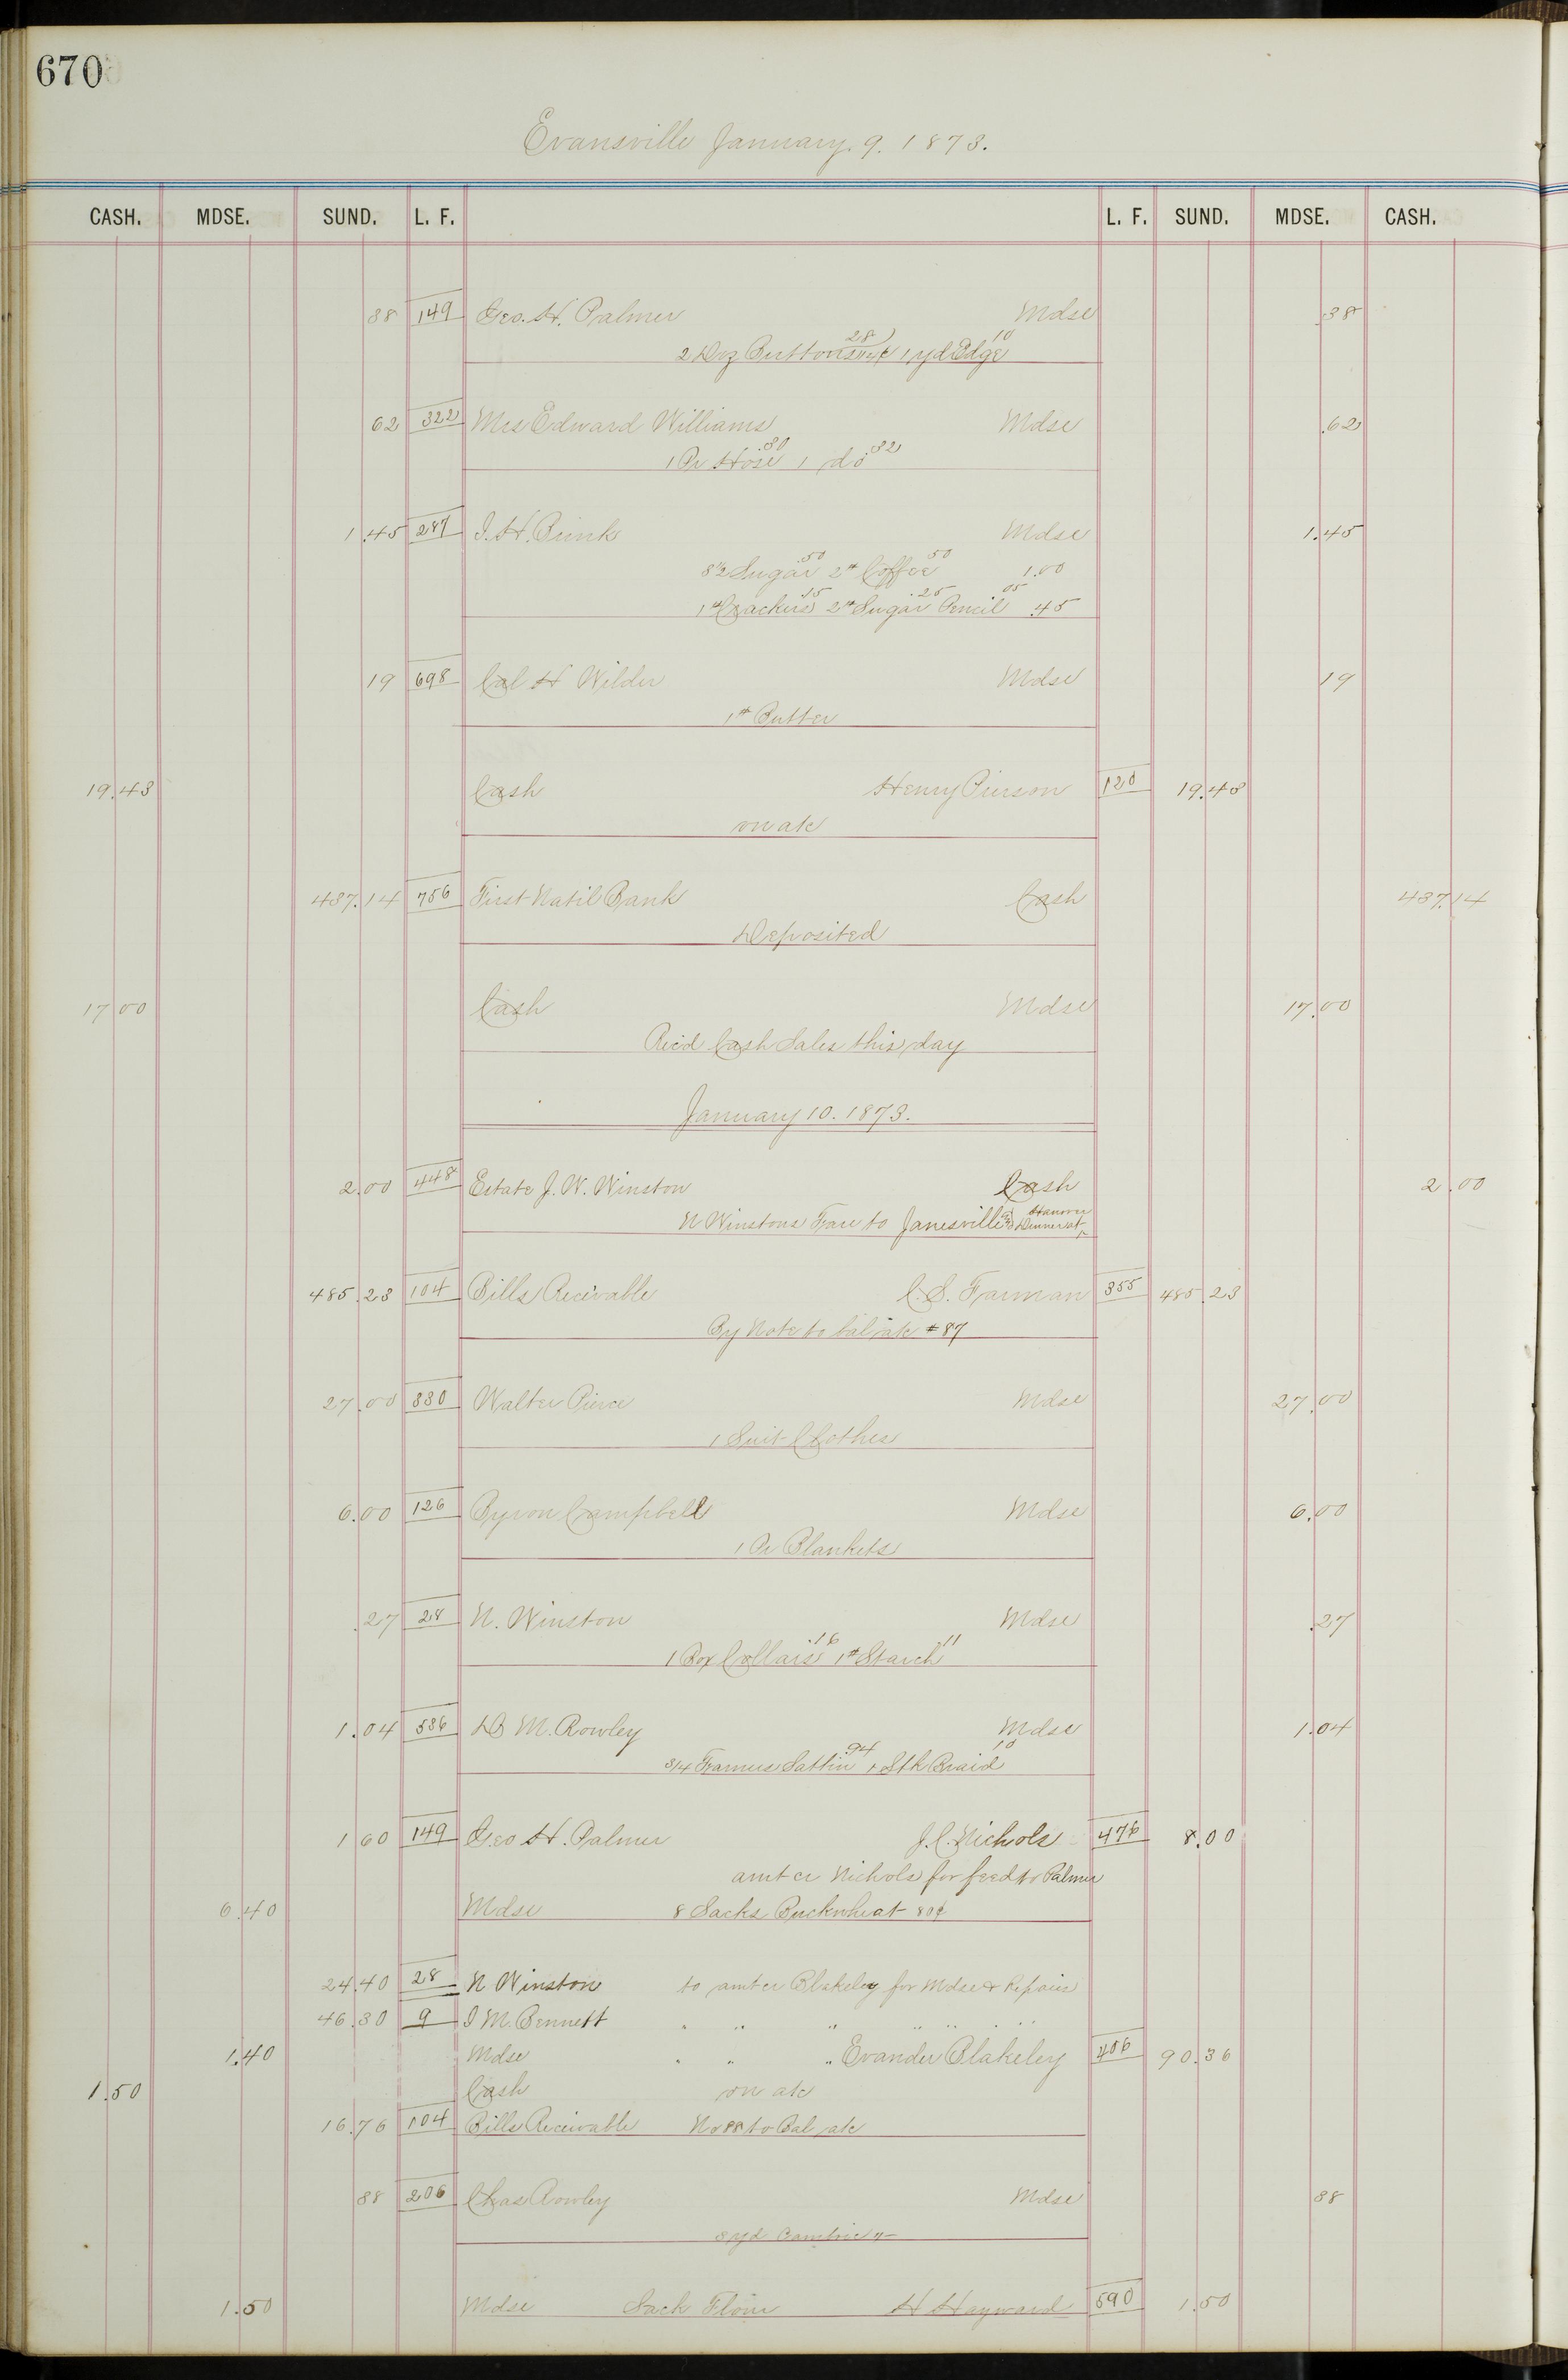 670
Evansville January 9. 1873.
CASH. MDSE. SUND. L. F. L. F. SUND. MDSE. CASH.
38 149 Geo. H. Palmer Mdse .38
2 Doz Buttons 28 1 yd Edge 10
62 322 Mrs Edward Williams Mdse .62
1 Pr Hose .30 1 do .32
1.45 287 I. H. Brink Mdse 1.45
Sugar .50 2# Coffee 50 1.00
1# Crackers 15 2# Sugar .25 Pencil 05 .45
19 698 Cal H Wilder Mdse 19
1# Butter
19.43 Cash Henry Pierson 120 19.43
on a/c
487.14 756 First Nat'l Bank Cash 487.14
Deposited
17 00 Cash Mdse 17.00
Rec'd Cash Sales this day
January 10. 1873.
2.00 448 Estate J. W. Winston Cash 2.00
N Winstons Fare to Janesville & Dinner at Hanover
485.23 104 Bills Recivable C. S. Farman 355 485.23
By Note to bal a/c #87
27.00 330 Walter Pierce Mdse 27.00
1 Suit Clothes
6.00 126 Byron Campbell Mdse 6.00
1 Pr Blankets
.27 28 N. Winston Mdse .27
1 Box Collars .16 1# Starch 11
1.04 536 D M. Rowley Mdse 1.04
3/4 Farmers Sattin .94 1 Stk Braid 10
1 60 149 Geo H. Palmer J. C. Nichols 476 8.00
amt cr Nichols for feed to Palmer
6.40 Mdse 8 Sacks Buckwheat 80¢
24.40 28 N Winston to amt cr Blakeley for Mdse & Repairs
46.30 9 I M. Bennett " " " " " " "
1.40 Mdse " " " Evander Blakeley 406 90.36
1.50 Cash on a/c
16.76 104 Bills Receivable No 88 to Bal a/c
88 206 Chas Rowley Mdse 88
8 yd Cambric 11
1.50 Mdse Sack Flour H Hayward 590 1.50